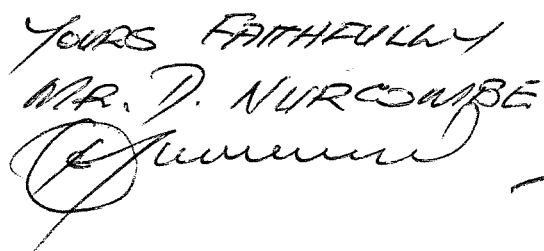 YOURS FAITHFULLY
MR. D. NURCOMBE